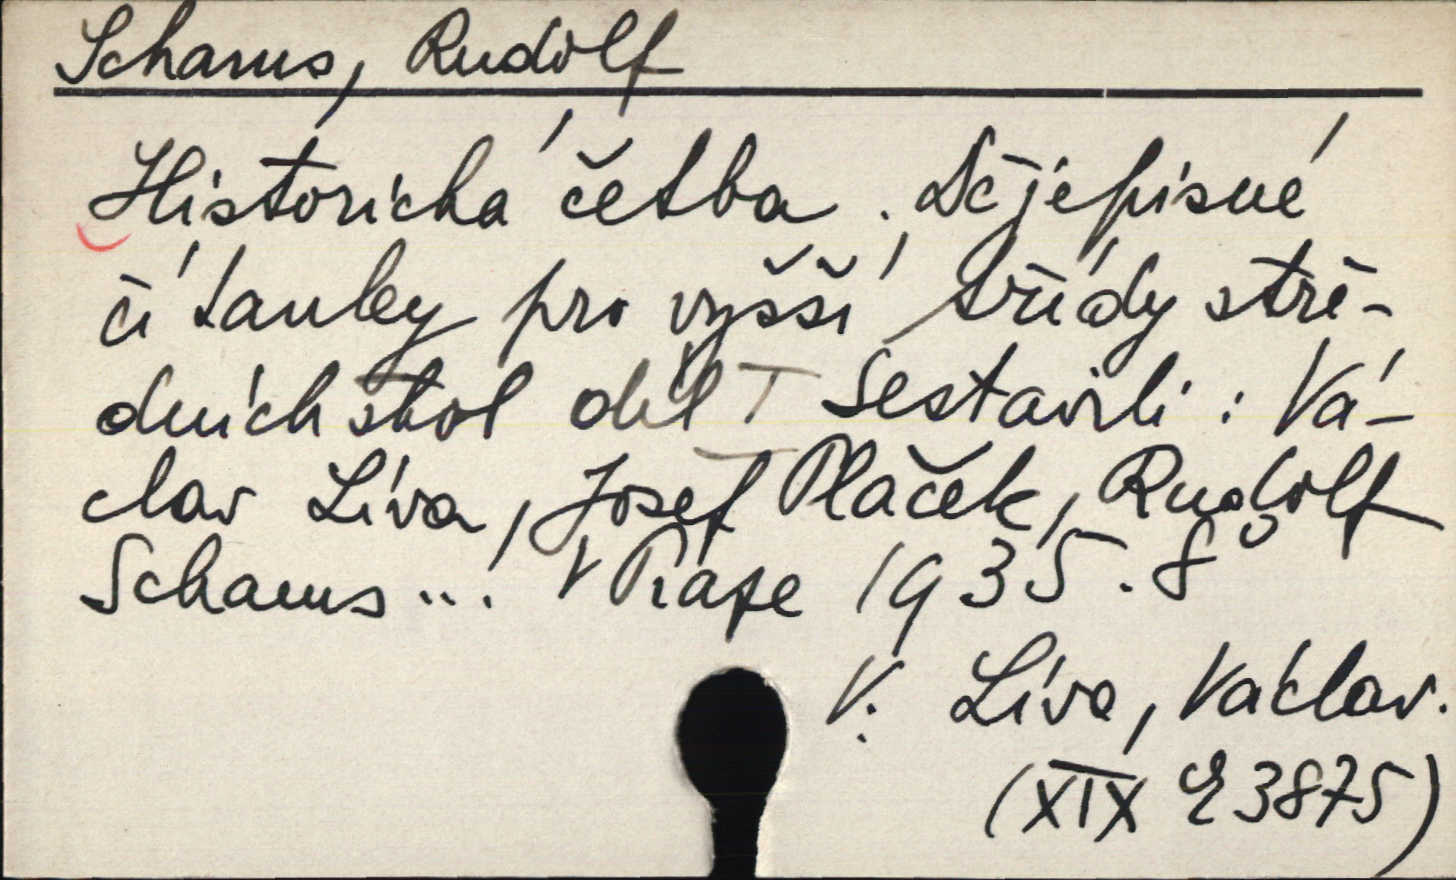 Schams, Rudolf
Historická četba. Dějepisné
čítanky pro vyšší třídy stře-
dních škol díl I Sestavili: Vá-
clav Líva, Josef Plaček, Rudolf
Schams... V Praze 1935. 8°
V. Líva, Václav.
(XIX E 3875)